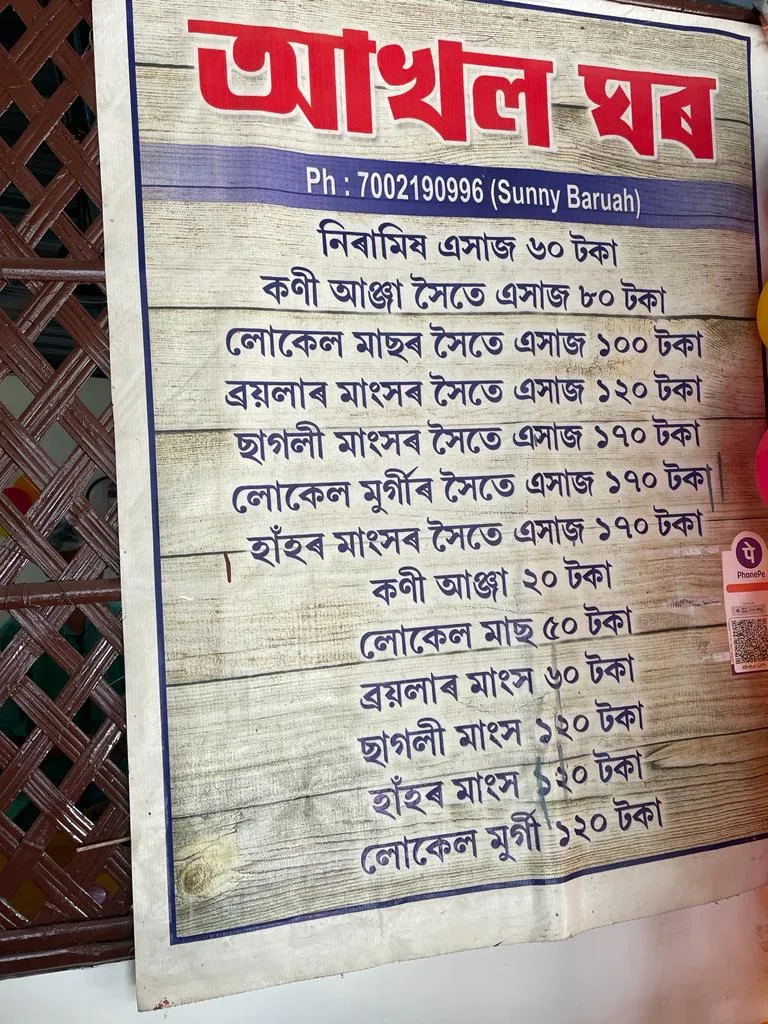 আখল ঘৰ
Ph : 7002190996 (Sunny Baruah)
নিৰামিষ এসাজ ৬০ টকা
কণী আঞ্জা সৈতে এসাজ ৮০ টকা
লোকেল মাছৰ সৈতে এসাজ ১০০ টকা
ব্ৰয়লাৰ মাংসৰ সৈতে এসাজ ১২০ টকা
ছাগলী মাংসৰ সৈতে এসাজ ১৭০ টকা
লোকেল মুৰ্গীৰ সৈতে এসাজ ১৭০ টকা
হাঁহৰ মাংসৰ সৈতে এসাজ ১৭০ টকা
কণী আঞ্জা ২০ টকা
লোকেল মাছ ৫০ টকা
ব্ৰয়লাৰ মাংস ৬০ টকা
ছাগলী মাংস ১২০ টকা
হাঁহৰ মাংস ১২০ টকা
লোকেল মুৰ্গী ১২০ টকা
पे
PhonePe